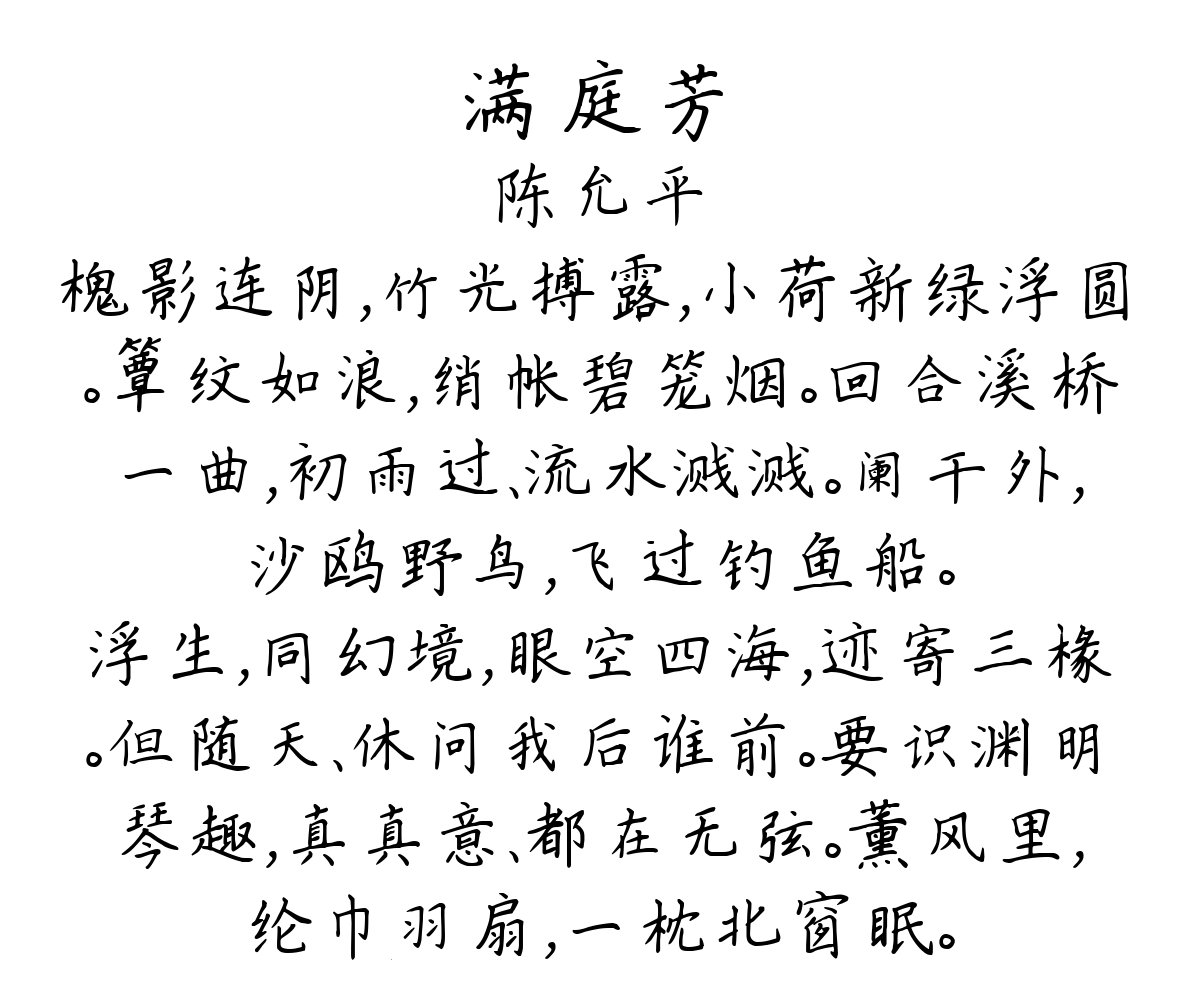 满庭芳
陈允平
槐影连阴,竹光搏露,小荷新绿浮圆
。簟纹如浪,绡帐碧笼烟。回合溪桥
一曲,初雨过、流水溅溅。阑干外,
沙鸥野鸟,飞过钓鱼船。
浮生,同幻境,眼空四海,迹寄三椽
。但随天、休问我后谁前。要识渊明
琴趣,真真意、都在无弦。薰风里,
纶巾羽扇,一枕北窗眠。